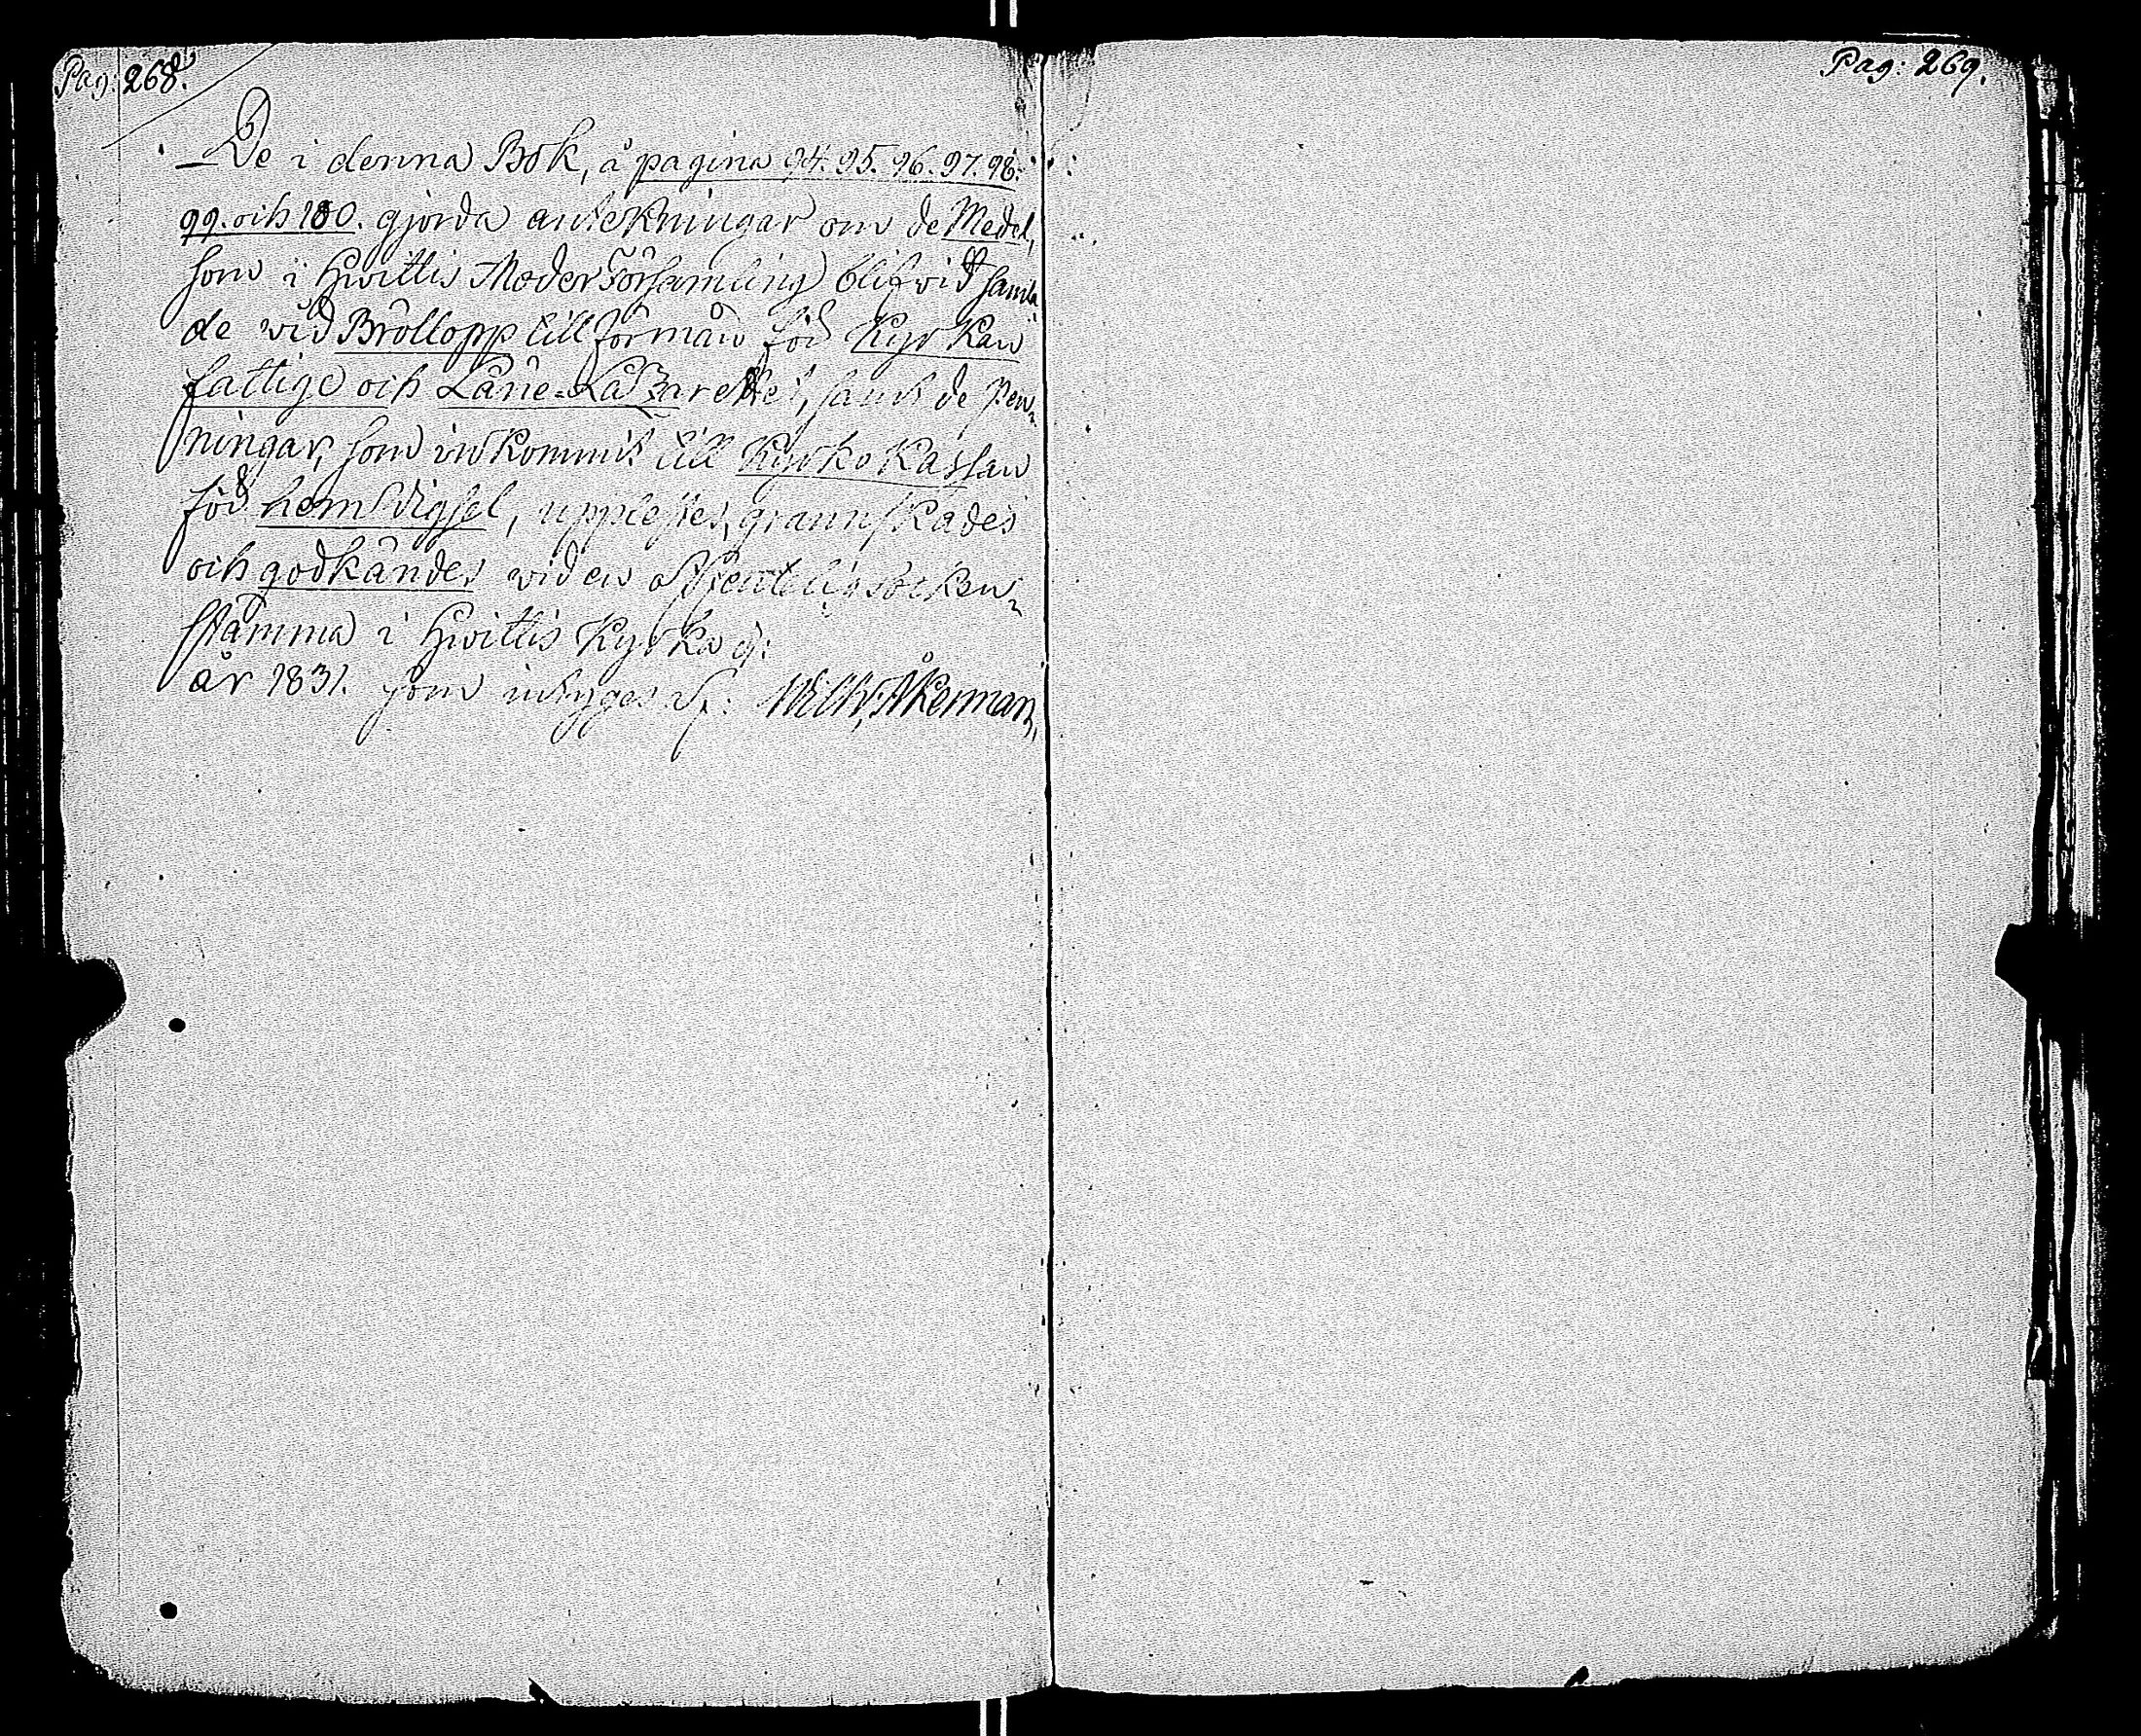 Pag: 268.
De i denna Bok, å pagina 94. 95. 96. 97. 98.
99. och 100. gjorda antekningar om de Medel,
som i Hwittis Moderförsamling blifwit samla-
de wid Bröllopp till förmån för Kyrkan
fattige och Läne-Lazarettet, samt de Pen-
ningar, som inkommit till Kyrko Kassan
för hemwigsel, upplestes, grannskades
och godkändes wid en offentelig Socken-
stämma i Hwittis Kyrka d:
år 1831. som intygas af: Wilh. Åkerman,
Pag: 269.